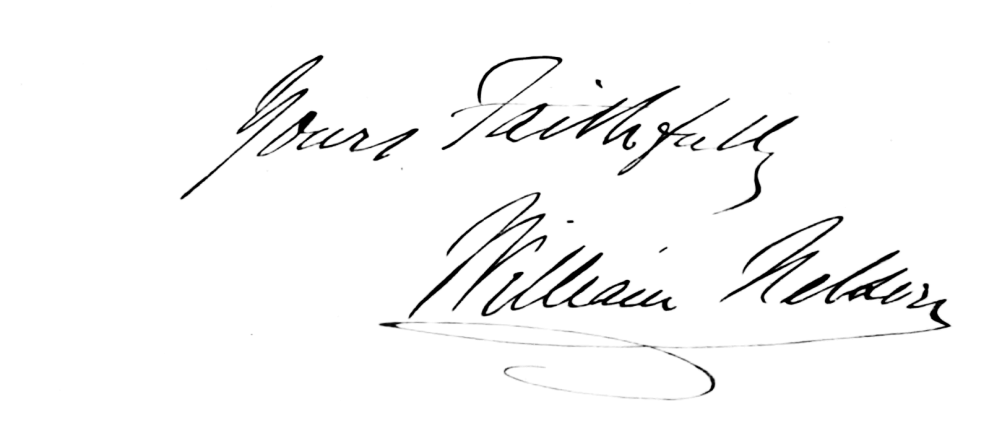 Yours Faithfully
William Nelson